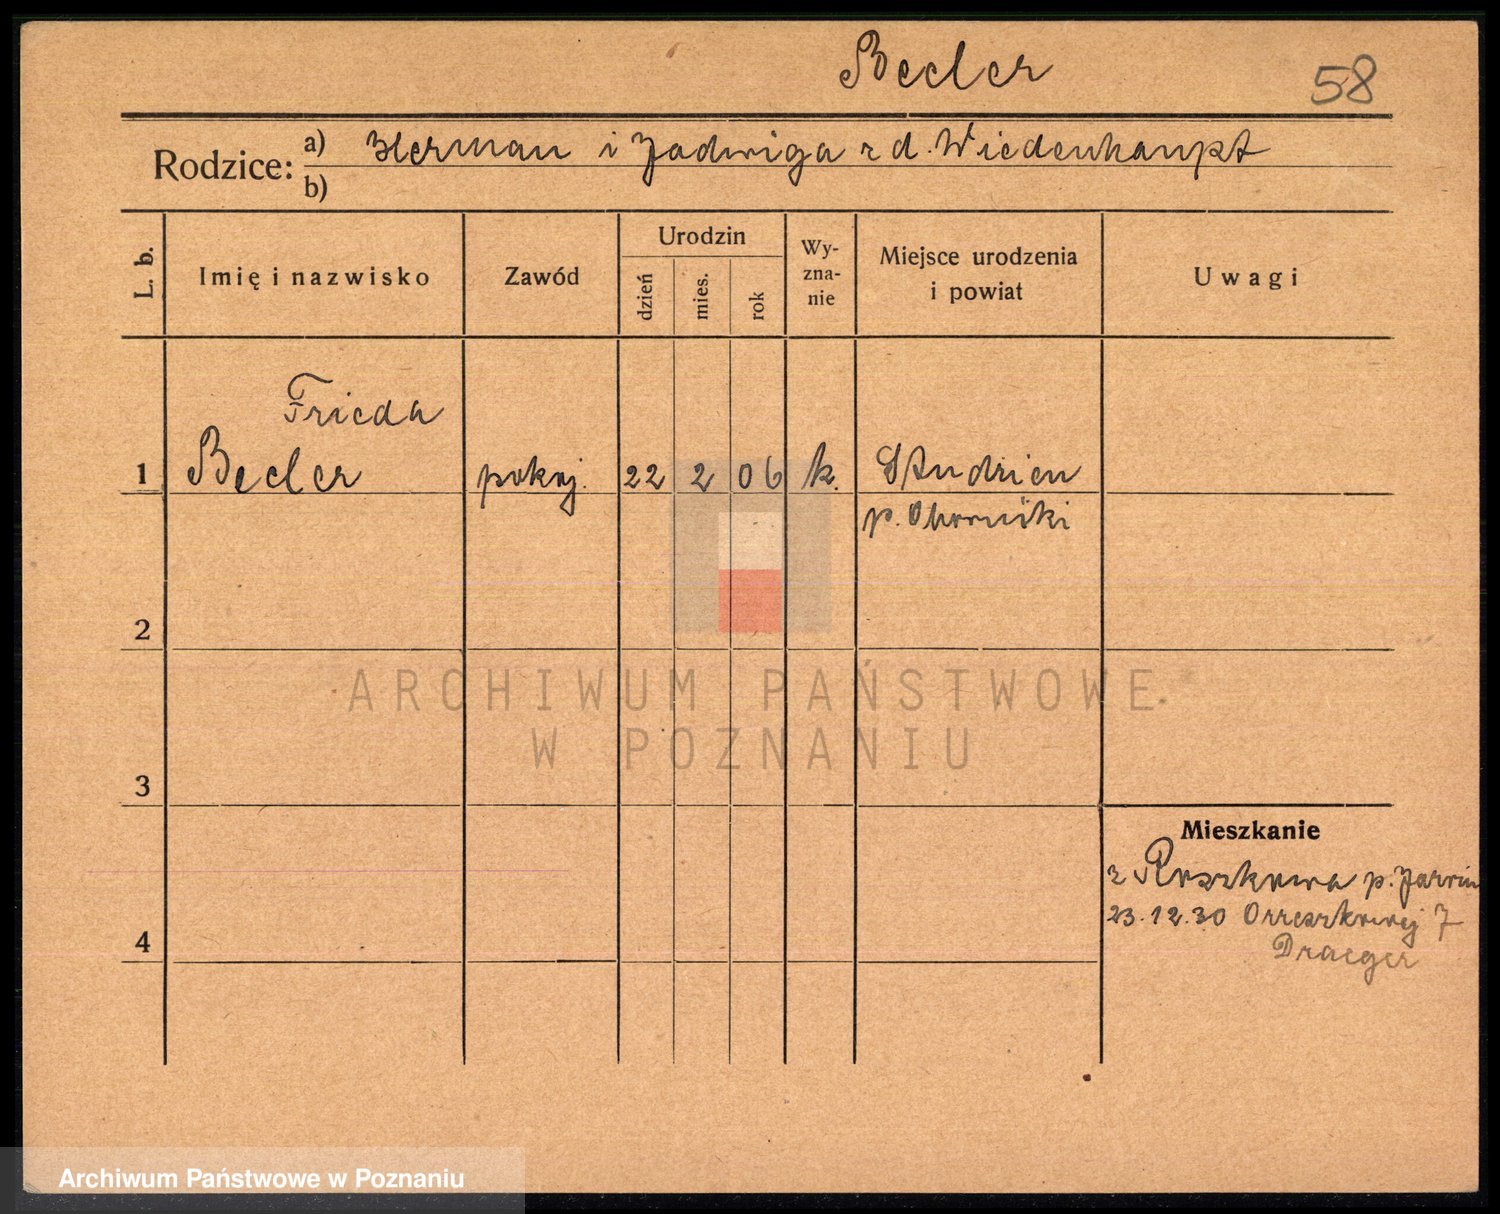 Becler 58
Rodzice: a) Herman i Jadwiga z d. Wiedenhaupt
b)
L. b. Imię i nazwisko Zawód Urodzin dzień mies. rok Wy- zna- nie Miejsce urodzenia i powiat Uwagi
Frieda
1 Becler pokoj. 22 2 06 k. Studzien
p. Oborniki
2
ARCHIWUM PAŃSTWOWE
W POZNANIU
3
Mieszkanie
z Roszkowa p. Jarocin
23.12.30 Orzeszkowej 7
4
Draeger
Archiwum Państwowe w Poznaniu